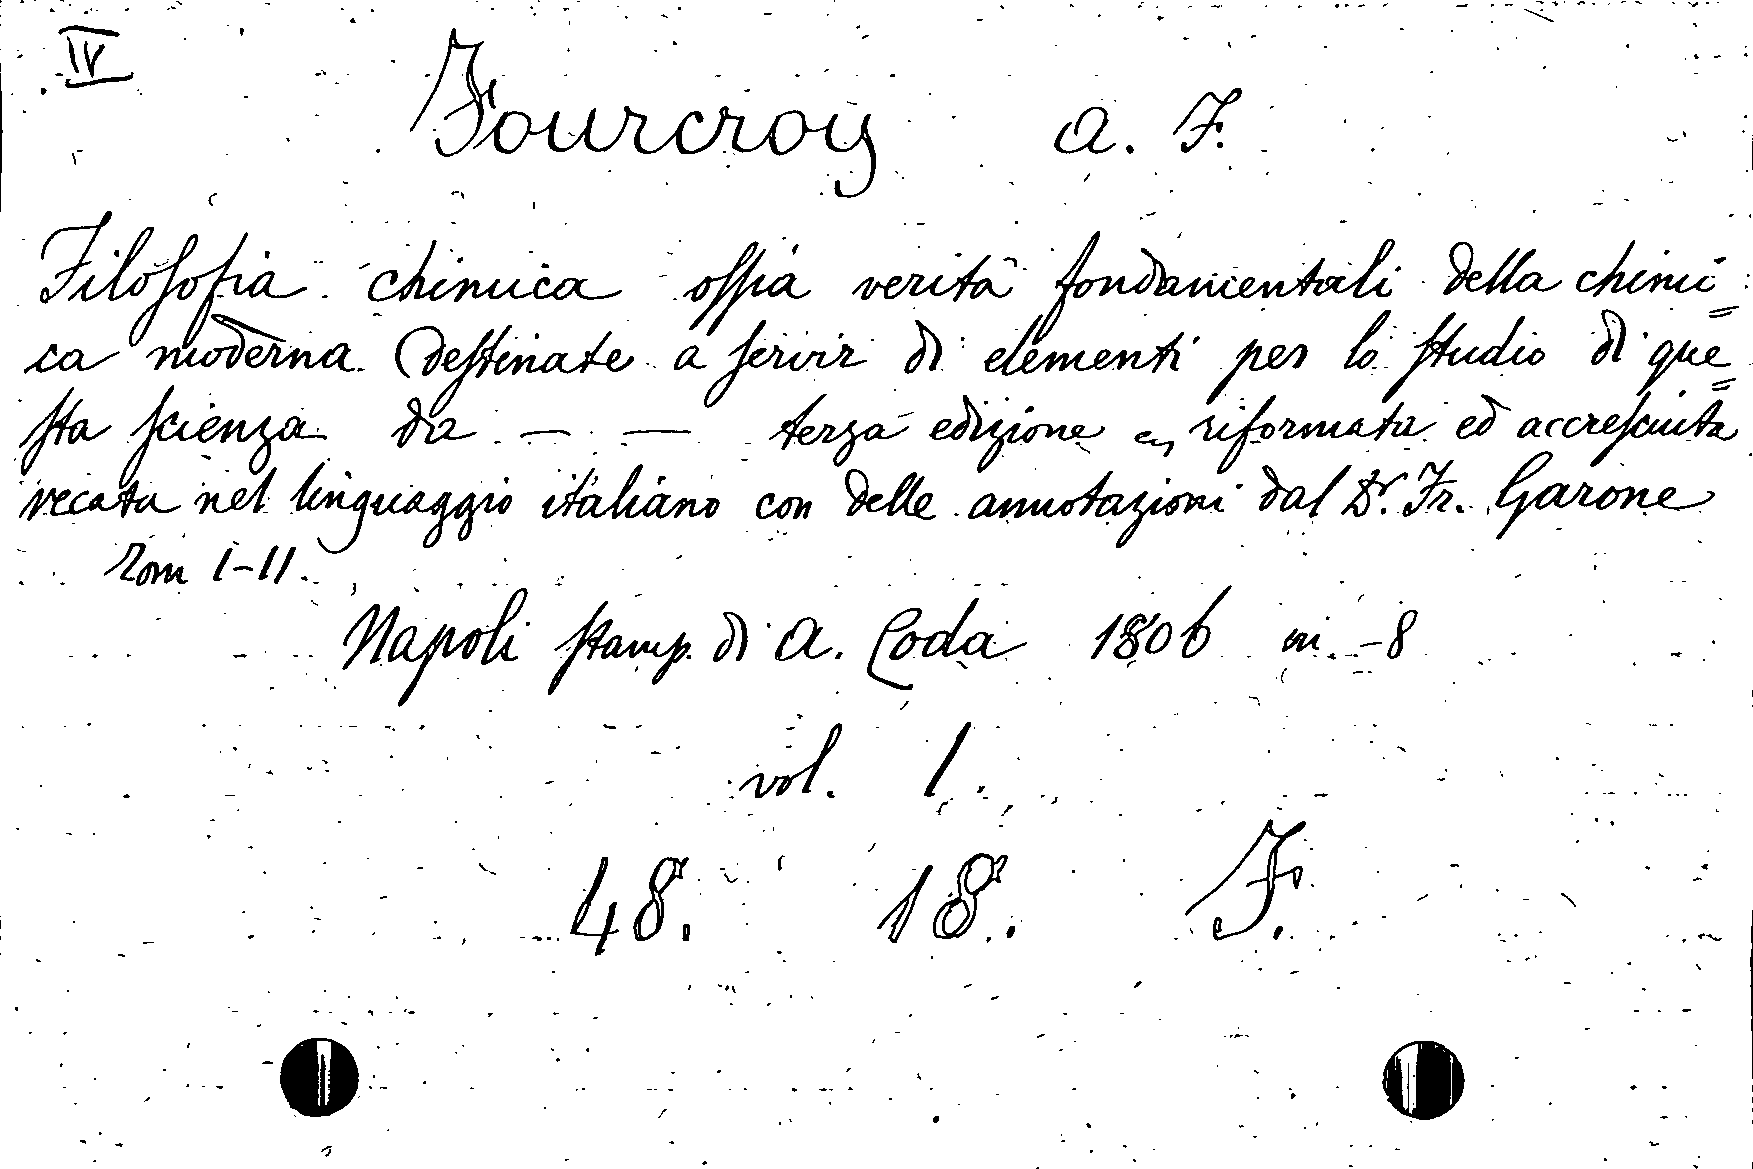 IV
Fourcroy A. F.
Filosofia chimica ossia verità fondamentali della chimi=
ca moderna. Destinate a servir di elementi per lo studio di que=
sta scienza da — — terza edizione riformata ed accresciuta
recata nel linguaggio italiano con delle annotazioni dal Dr. Fr. Garone
Tom I-II.
Napoli stamp. di A. Coda 1806 in -8
vol. 1.
48. 18. F.